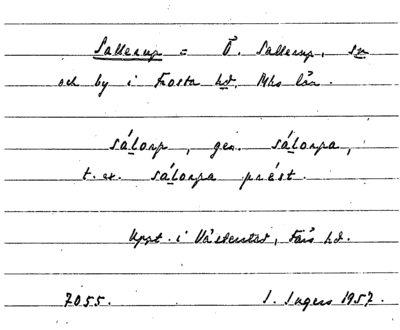 Sallerup = Ö. Sallerup, sn
och by i Frosta hd. Mhs län.
sálorp, gen. sálorpa,
t. ex. sálorpa prést.
Uppt. i Vä , Färs hd.
7055. I. Ingers 1957.